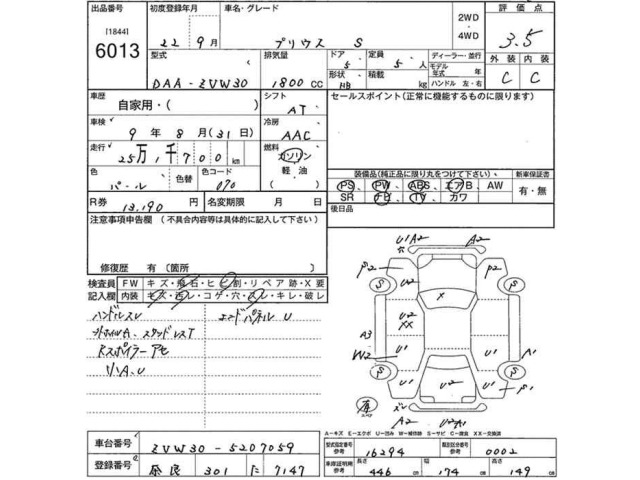 出品番号 初度登録年月 車名・グレード 2WD・4WD 評価点
[1844] 22年 9月 プリウス S 3.5
6013 型式 排気量 ドア 定員 ディーラー・並行
DAA-ZVW30 1800CC 5 5人 モデル年式 年 外装 内装
形状 HB 積載 kg ハンドル 左・右 C C
車歴 自家用・( ) シフト AT セールスポイント(正常に機能するものに限ります)
車検 9年 8月(31日) 冷房 AAC
走行 25万,千700km 燃料 ガソリン
軽・油
色 パール 色替 色コード 070 装備品(純正品に限り丸をつけて下さい) 新車保証書
PS、PW、ABS、エアB、AW 有・無
SR ナビ、TV、カワ
R券 13,190円 名変期限 月 日 後日品
注意事項申告欄(不具合内容等は具体的に記入して下さい)
修復歴 有〔箇所 〕
検査員記入欄 FW キズ・飛石・ヒビ・割・リペア跡・X要
内装 キズ・汚レ・コゲ・穴・スレ・キレ・破レ
ハンドルスレ エンドパネルU
スタッドレスT
リハA、U
U1 A2 A2
穴
P2 U2 P2
S S
X
U2
XX
A3
W2 U1 U1 A1
S S
U1 U2 U1 S1
有 スレ
A2 U2A1
A-キズ E-エクボ U-凹み W-補修跡 S-サビ C-腐食 XX-交換済
車台番号 ZVW30-5207059 型式指定番号 参考 16294 類別区分番号 参考 0002
登録番号 奈良 301 に 7147 車庫証明用 参考 長さ 446cm 幅 174cm 高さ 149cm